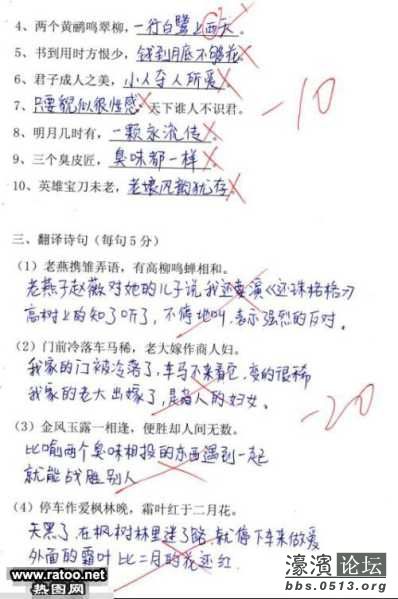 4、两个黄鹂鸣翠柳，一行白鹭上西天。
5、书到用时方恨少，钱到月底不够花。
6、君子成人之美，小人夺人所爱。
7、只要貌似很性感，天下谁人不识君。
-10
8、明月几时有，一颗永流传。
9、三个臭皮匠，臭味都一样。
10、英雄宝刀未老，老娘风韵犹存。
三、翻译诗句（每句5分）
（1）老燕携雏弄语，有高柳鸣蝉相和。
老燕子赵薇对她的儿子说我还要演《还珠格格》
高树上的知了听了，不停地叫，表示强烈的反对。
（2）门前冷落车马稀，老大嫁作商人妇。
我家的门被冷落了，车马不来看它，变的很稀
我家的老大出嫁了，是商人的妇女。
-20
（3）金风玉露一相逢，便胜却人间无数。
比喻两个臭味相投的东西遇到一起
就能战胜别人
（4）停车作爱枫林晚，霜叶红于二月花。
天黑了，在枫树林里迷了路，就停下车来做爱
外面的霜叶比二月的花还红.
www.ratoo.net
热图网
濠滨论坛
bbs.0513.net